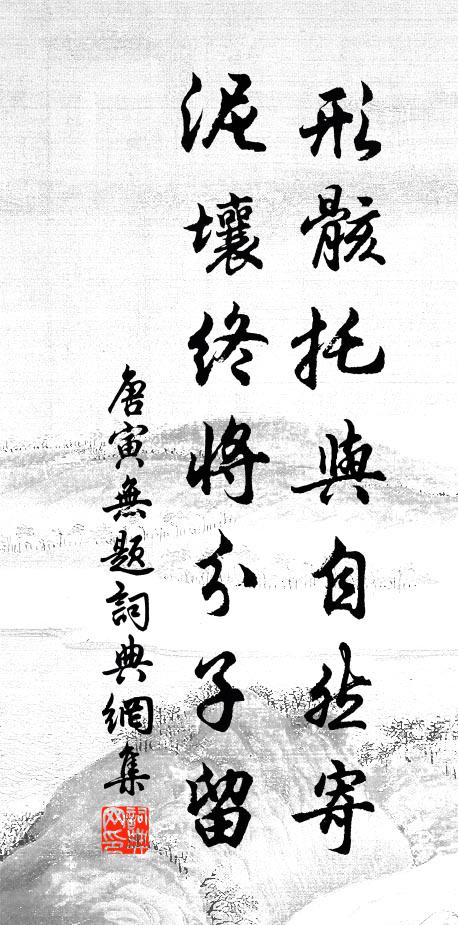 形骸托與自然寄
泥壤終將分子留
唐寅無題詞典網集